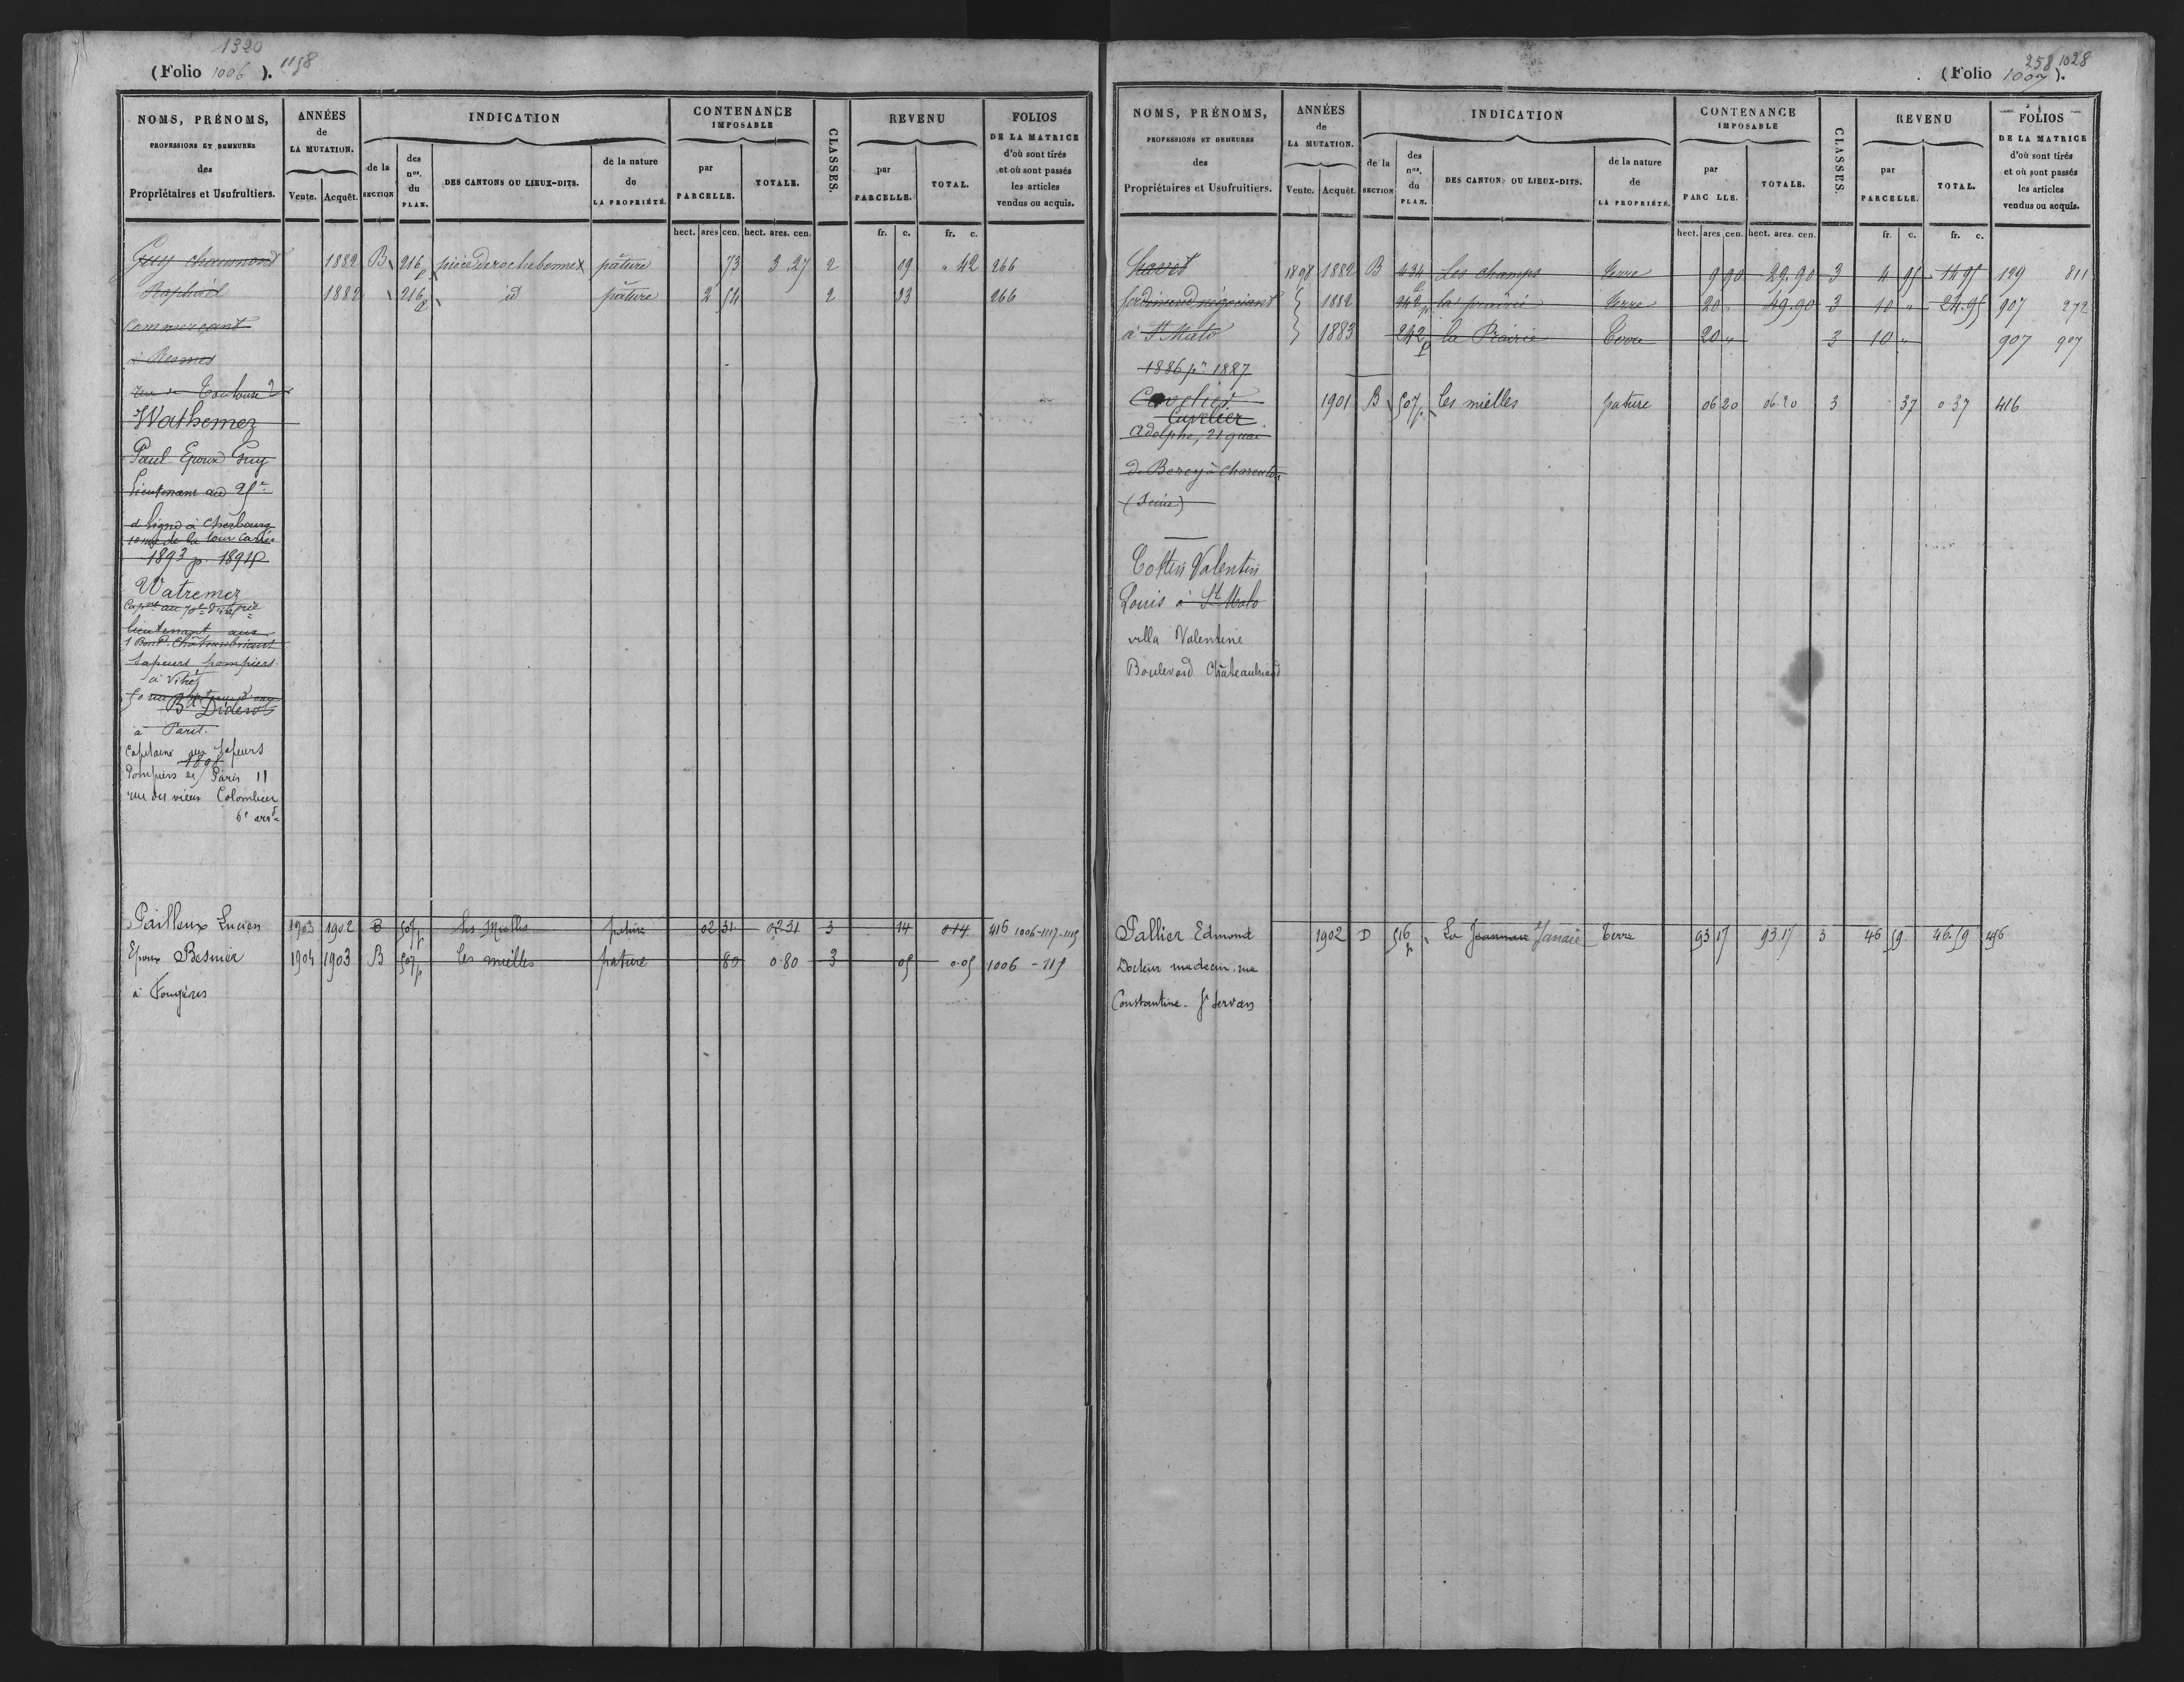 1320
(Folio 1006 ). 1158
NOMS, PRÉNOMS, PROFESSIONS ET DEMEURES des Propriétaires et Usufruitiers.
ANNÉES de LA MUTATION. Vente. Acquêt.
INDICATION de la SECTION des nos. du PLAN. DES CANTONS OU LIEUX-DITS. de la nature de LA PROPRIÉTÉ.
CONTENANCE IMPOSABLE par PARCELLE. TOTALE.
CLASSES.
REVENU par PARCELLE. TOTAL.
FOLIOS DE LA MATRICE d'où sont tirés et où sont passés les articles vendus ou acquis.
hect. ares cen. hect. ares. cen. fr. c. fr. c.
Guy 1882 B 216 p pâture 73 3.27 2 09 " 42 266
Raphaël 1882 216 p id pâture 2 54 2 33 266
Commerçant
à Rennes
rue de Toulouse 2
Wathemez
Paul Epoux Guy
Lieutenant au 25e
de ligne à Cherbourg
10 rue de la Tour Carrée
1893 p. 1894
Watremez
lieutenant aux
Sapeurs pompiers
à Vitré
Bd Diderot
à Paris.
Capitaine aux Sapeurs
1898
Pompiers de Paris 11
rue du vieux Colombier
6e arrd
Pailleux Lucien 1903 1902 B 507 p Les Mielles pature 02 31 02 31 3 14 0 14 416 1006-1117-1115
Epoux Besnier 1904 1903 B 507 p Les mielles pature 80 0.80 3 05 0.05 1006 - 115
à Fougères
258 1028
(Folio 1007 ).
NOMS, PRÉNOMS, PROFESSIONS ET DEMEURES des Propriétaires et Usufruitiers.
ANNÉES de LA MUTATION. Vente. Acquêt.
INDICATION de la SECTION des nos. du PLAN. DES CANTONS OU LIEUX-DITS. de la nature de LA PROPRIÉTÉ.
CONTENANCE IMPOSABLE par PARCELLE. TOTALE.
CLASSES.
REVENU par PARCELLE. TOTAL.
FOLIOS DE LA MATRICE d'où sont tirés et où sont passés les articles vendus ou acquis.
hect. ares cen. hect. ares. cen. fr. c. fr. c.
Havet 1898 1882 B 434 Les champs Terre 9 90 29.90 3 4 95 14 95 129 811
ferdinand négociant 1882 242 p la prairie Terre 20 " 49.90 3 10 " 24.95 907 272
à St Malo 1883 242 p la Prairie Terre 20 " 3 10 " 907 907
1886 pr 1887
Cavelier 1901 B 507 p Les mielles pature 06 20 06.20 3 37 0.37 416
Cuvelier
Adolphe, 21 quai
de Bercy à Charenton
(Seine)
Cottin Valentin
Louis à St Malo
villa Valentine
Boulevard Châteaubriand
Pallier Edmond 1902 D 516 p La Jeannaie Janaie Terre 93 17 93.17 3 46 59 46.59 456
Docteur medecin rue
Constantine. St Servan